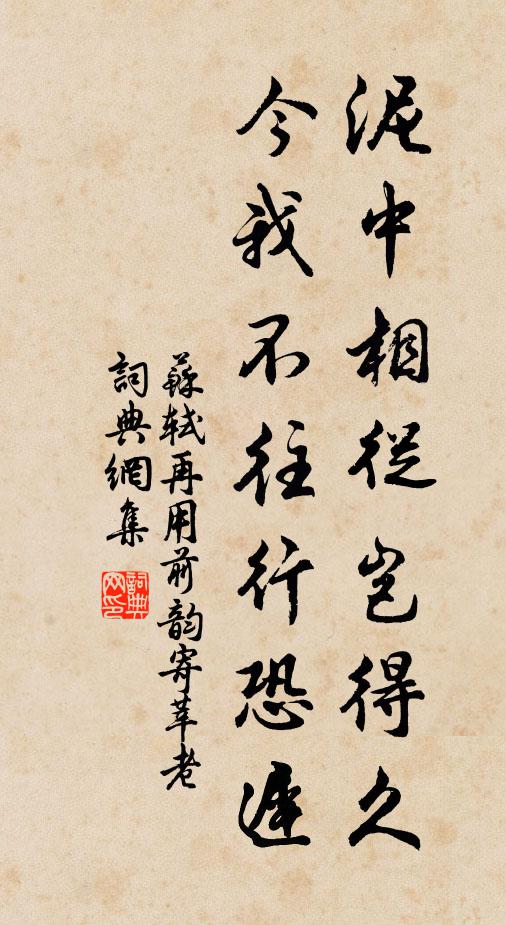 泥中相從豈得久
今我不往行恐遲
蘇軾再用前韵寄莘老
詞典網集
詞典
网印